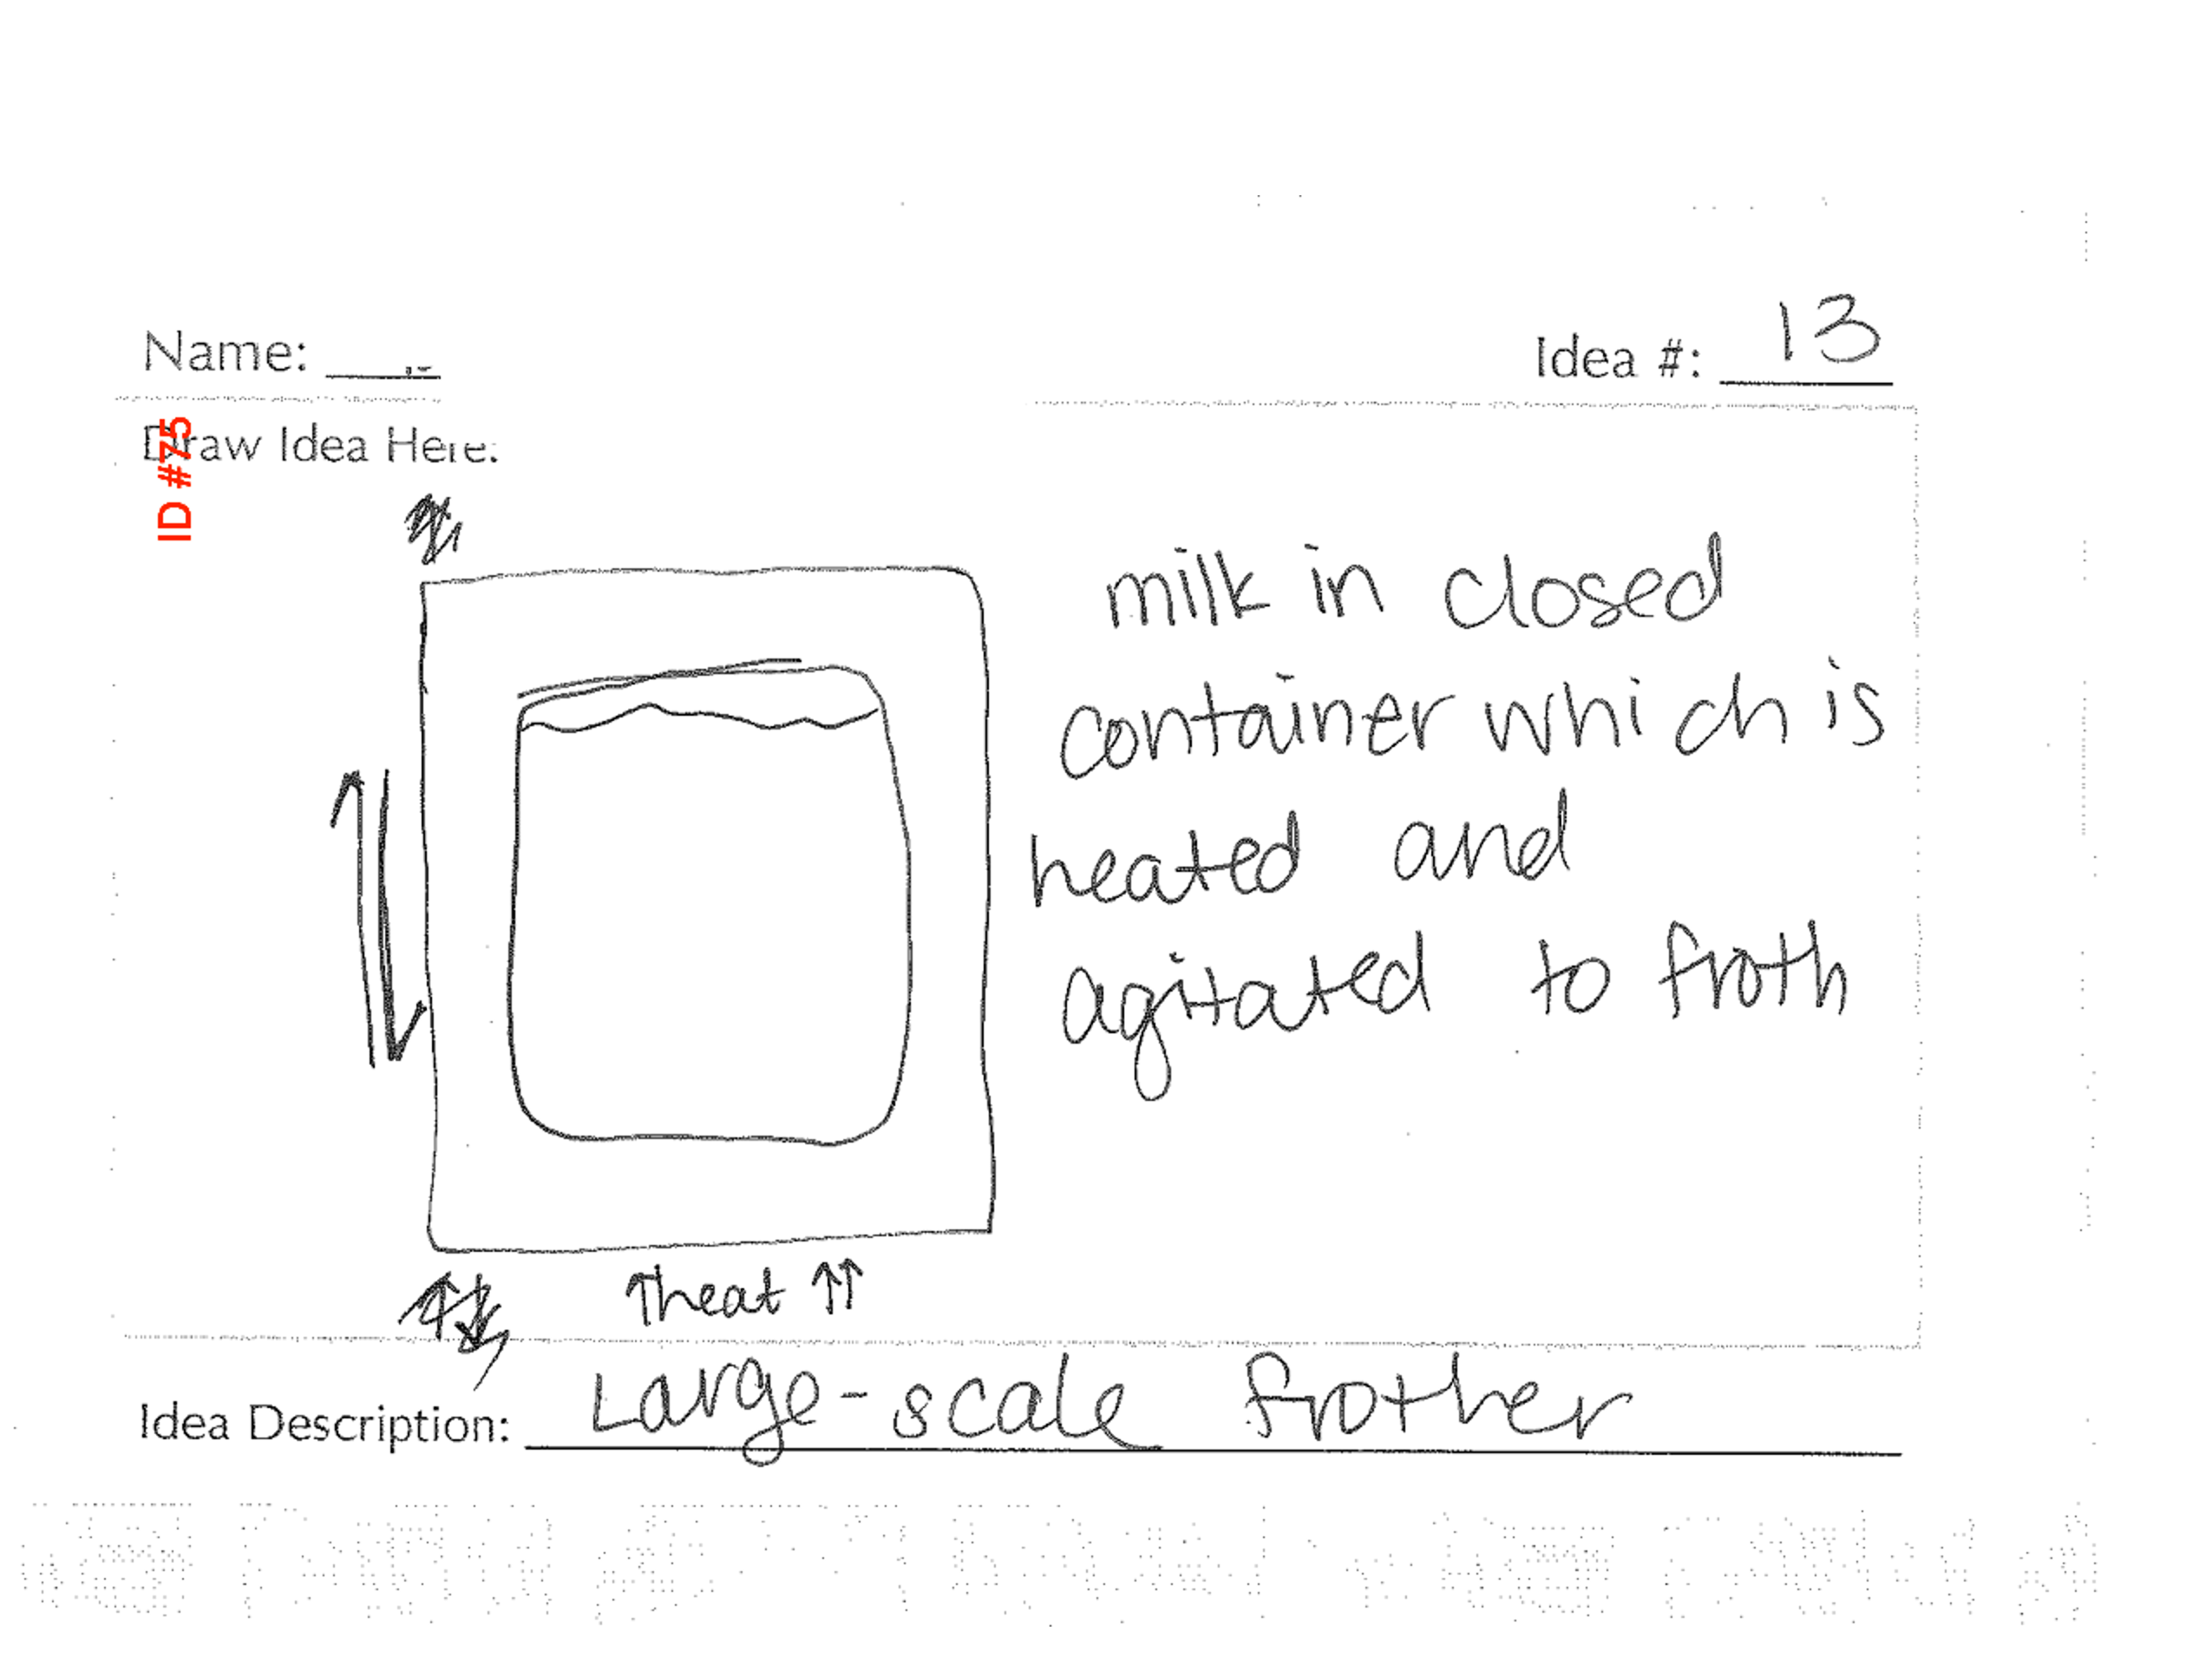 Name:
Idea #: 13
ID #75
Draw Idea Here:
milk in closed
container which is
heated and
agitated to froth
↑heat ↑↑
Idea Description: Large-scale frother